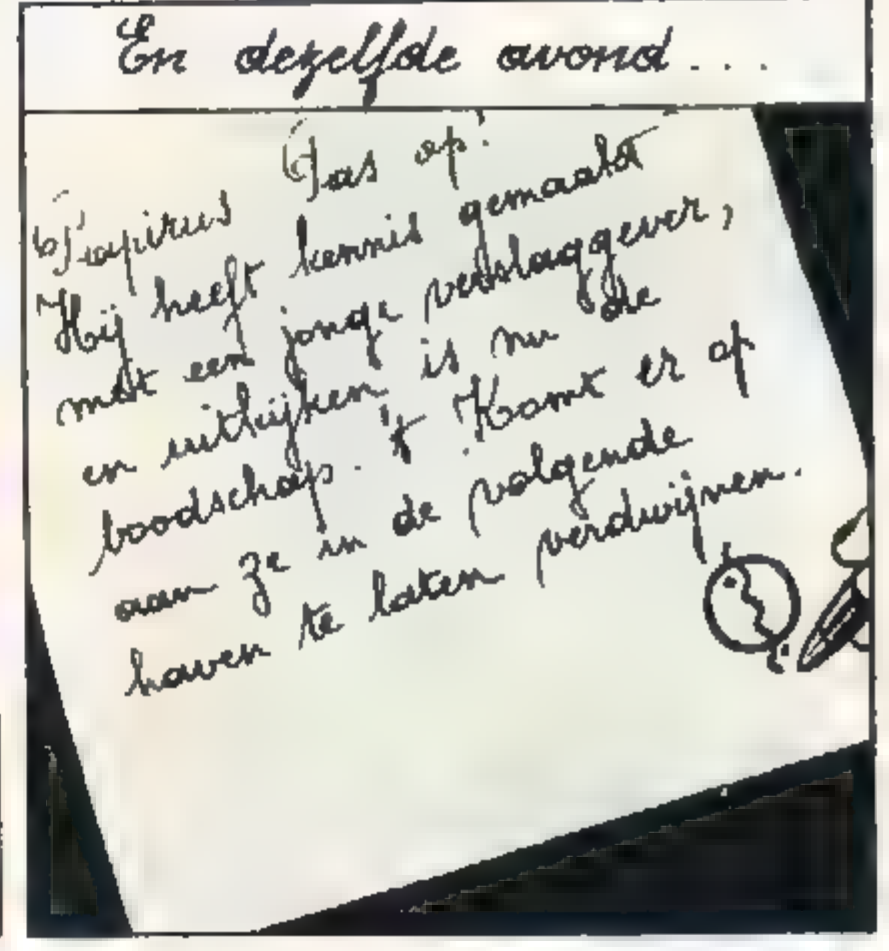 En dezelfde avond...
Pas op!
Papirus
Hij heeft kennis gemaakt
met een jonge verslaggever,
en uitkijken is nu de
boodschap. 't Komt er op
aan ze in de volgende
haven te laten verdwijnen.